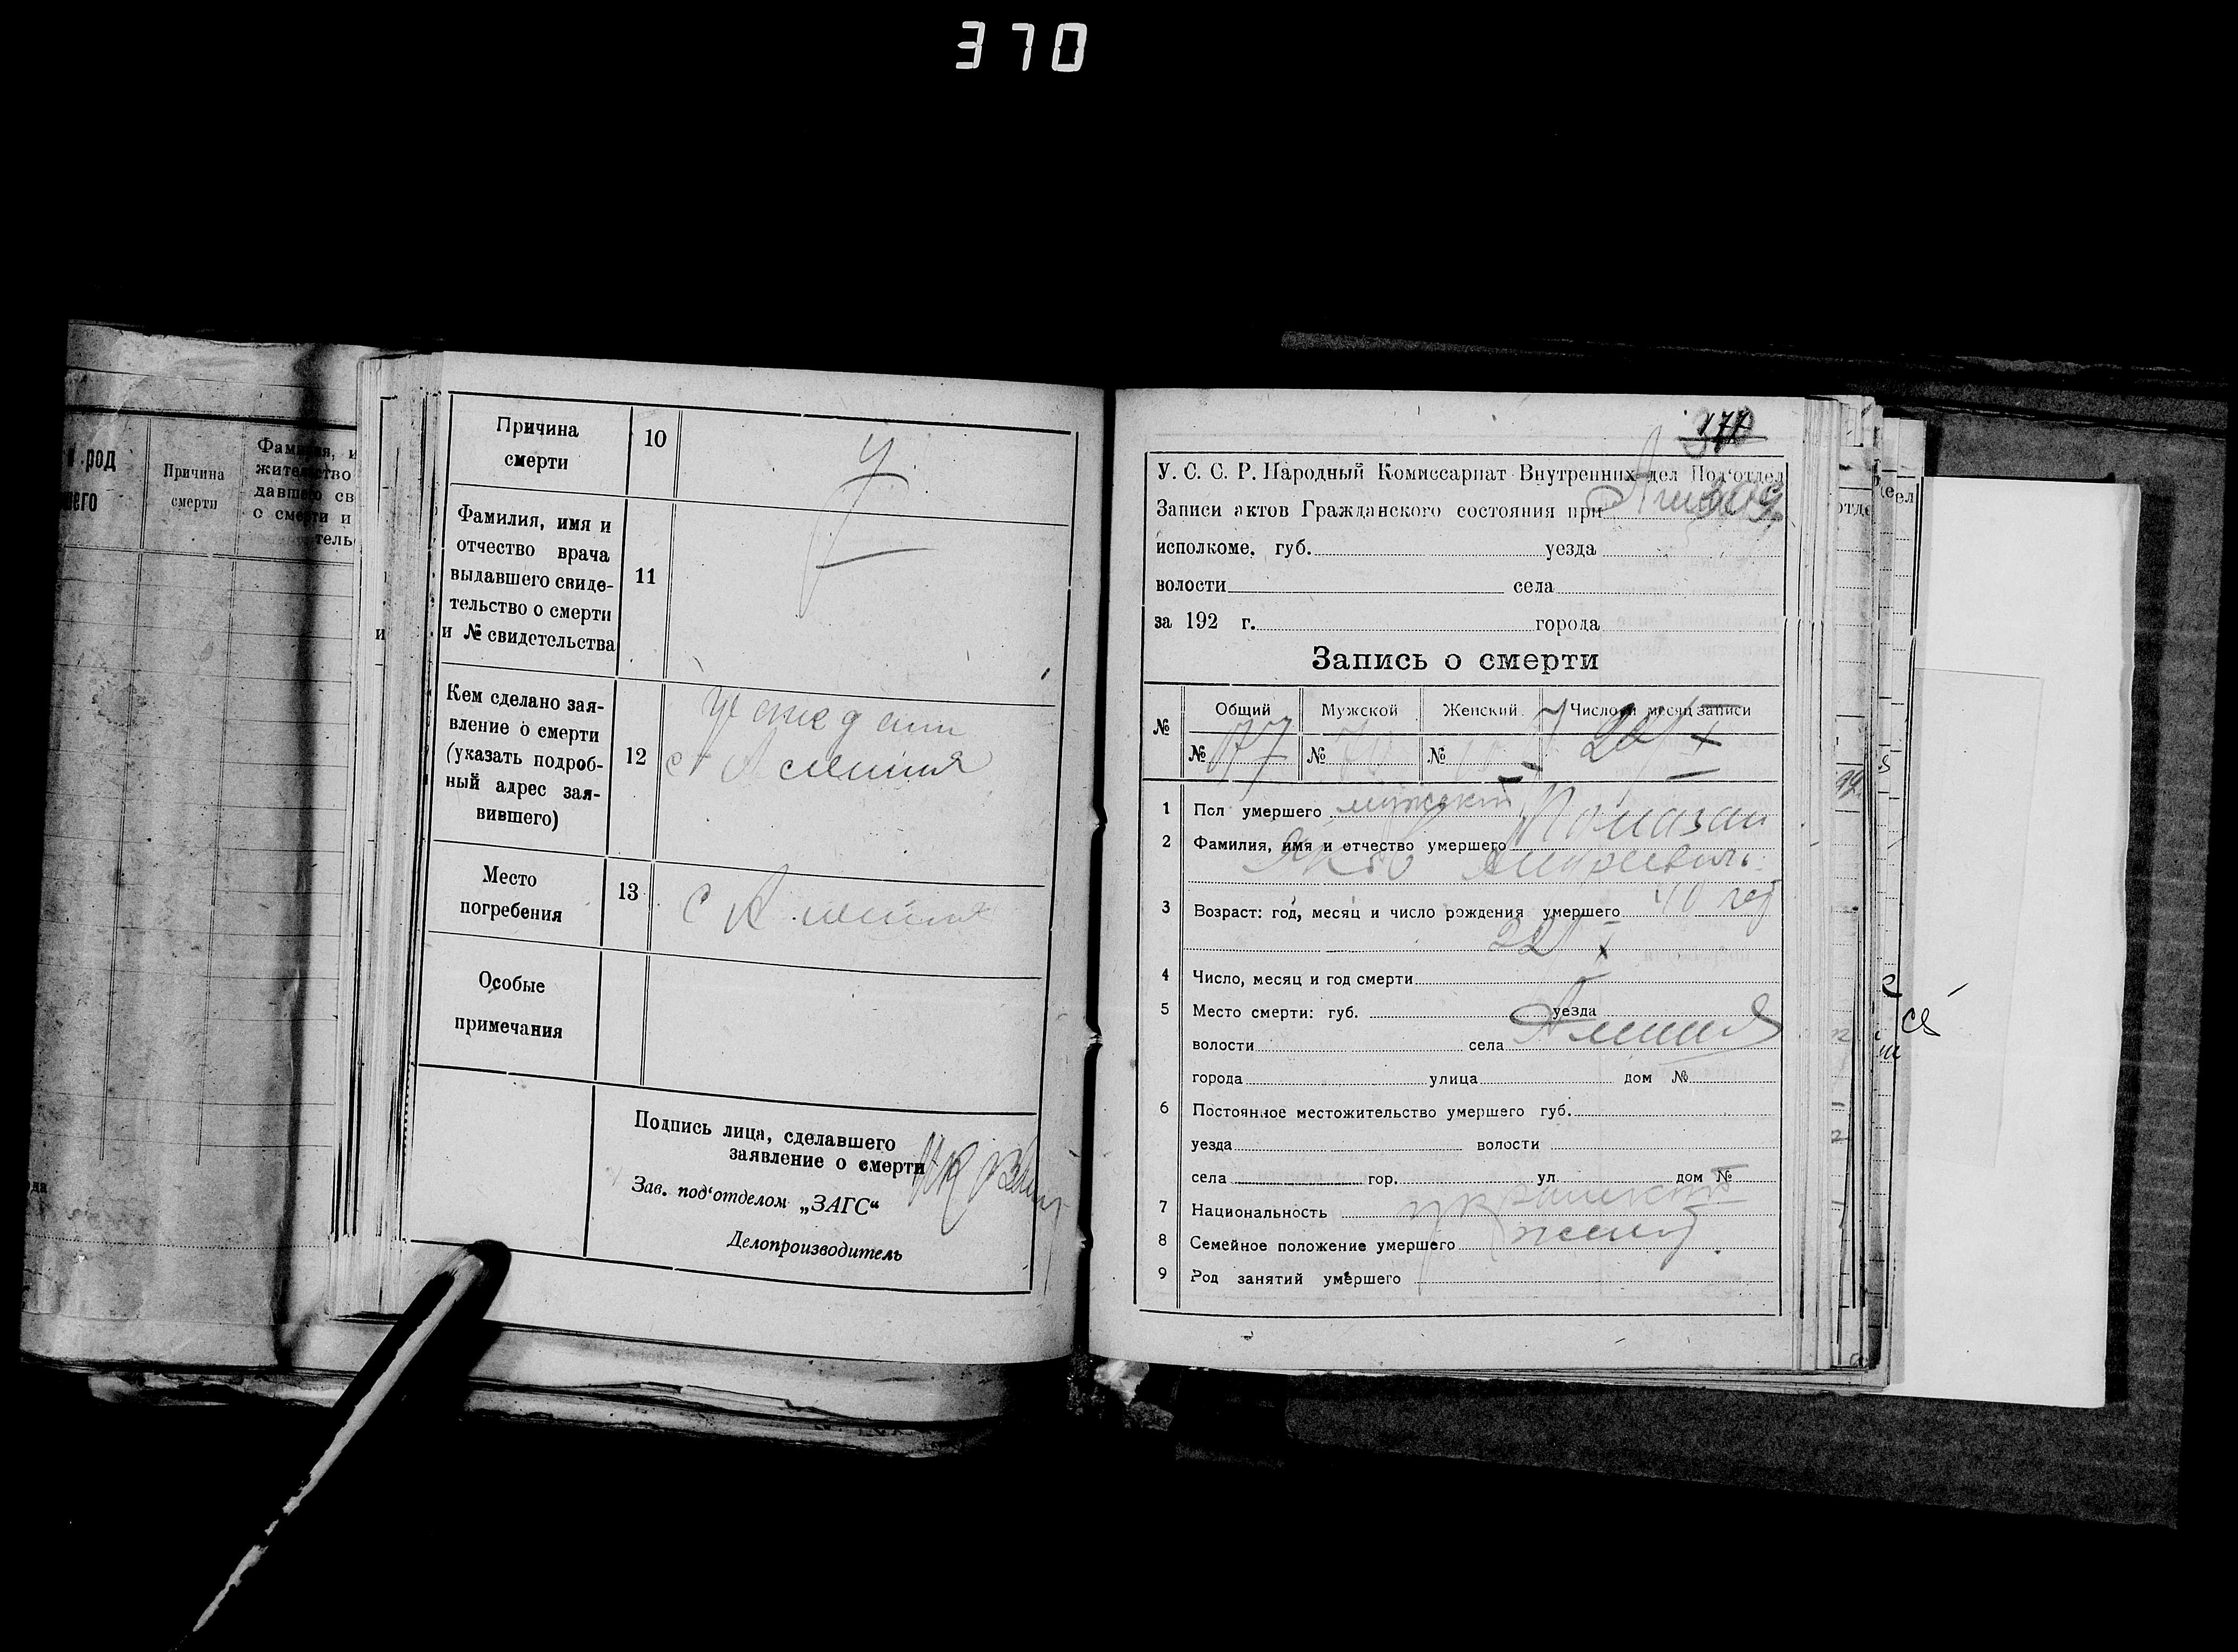 370
и род
шего
Причина
смерти
Фамилия, и
жительство
давшего св
о смерти и
тель
и
Причина
смерти
10
Фамилия, имя и
отчество врача
выдавшего свиде-
тельство о смерти
и № свидетельства
11
Кем сделано зая-
вление о смерти
(указать подроб-
ный адрес зая-
вившего)
12
Место
погребения
13
с
Особые
примечания
Подпись лица, сделавшего
заявление о смерти
Зав. под‘отделом „ЗАГС“
Делопроизводитель
177
У. С. С. Р. Народный Комиссариат Внутренних дел Под‘отдел
Записи актов Гражданского состояния при
исполкоме. губ. уезда
волости села
за 192 г. города
Запись о смерти
№ Общий Мужской Женский Число и месяц записи
№ 77 № № 24/X
1 Пол умершего мужской
2 Фамилия, имя и отчество умершего Помазан
Яков Андреевич
3 Возраст: год, месяц и число рождения умершего 40 год
22 X
4 Число, месяц и год смерти
5 Место смерти: губ. уезда
волости села
города улица дом №
6 Постоянное местожительство умершего губ.
уезда волости
села гор. ул. дом №
7 Национальность
8 Семейное положение умершего
9 Род занятий умершего